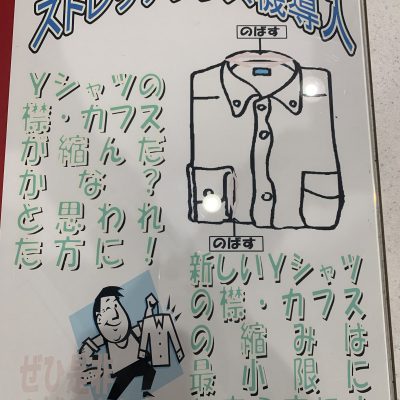 ストレッチプレス機導入
のばす
Yシャツの
襟・カフス
が縮んだ
かな?
と思われ
た方に!
のばす
新しいYシャツ
の襟・カフス
の縮みは
最小限に
ぜひ